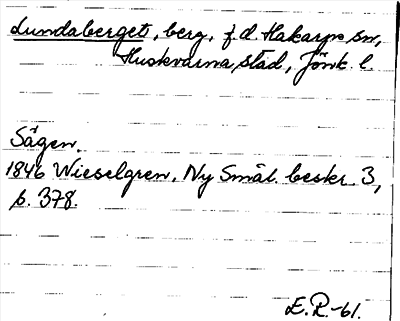 Lundaberget, berg, f.d. Hakarps sn,
Huskvarna stad, Jönk. l.
Sägen.
1846 Wieselgren, Ny Smål. beskr. 3,
p. 378.
E.R.-61.